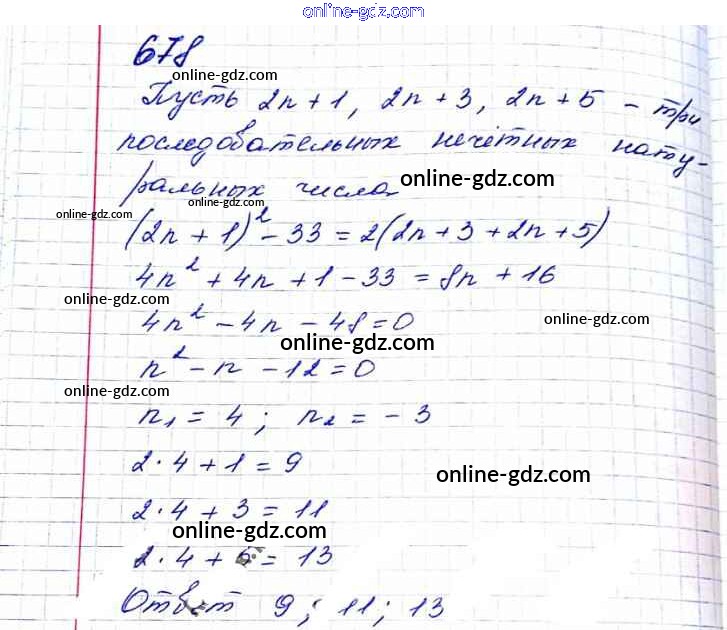 online-gdz.com
678
online-gdz.com
Пусть 2n + 1, 2n + 3, 2n + 5 - три
последовательных нечётных нату-
ральных числа
online-gdz.com
online-gdz.com
online-gdz.com
(2n + 1)² - 33 = 2(2n + 3 + 2n + 5)
4n² + 4n + 1 - 33 = 8n + 16
online-gdz.com
4n² - 4n - 48 = 0
online-gdz.com
online-gdz.com
n² - n - 12 = 0
online-gdz.com
n₁ = 4 ; n₂ = - 3
2 · 4 + 1 = 9
online-gdz.com
2 · 4 + 3 = 11
online-gdz.com
2 · 4 + 5 = 13
Ответ 9 ; 11 ; 13